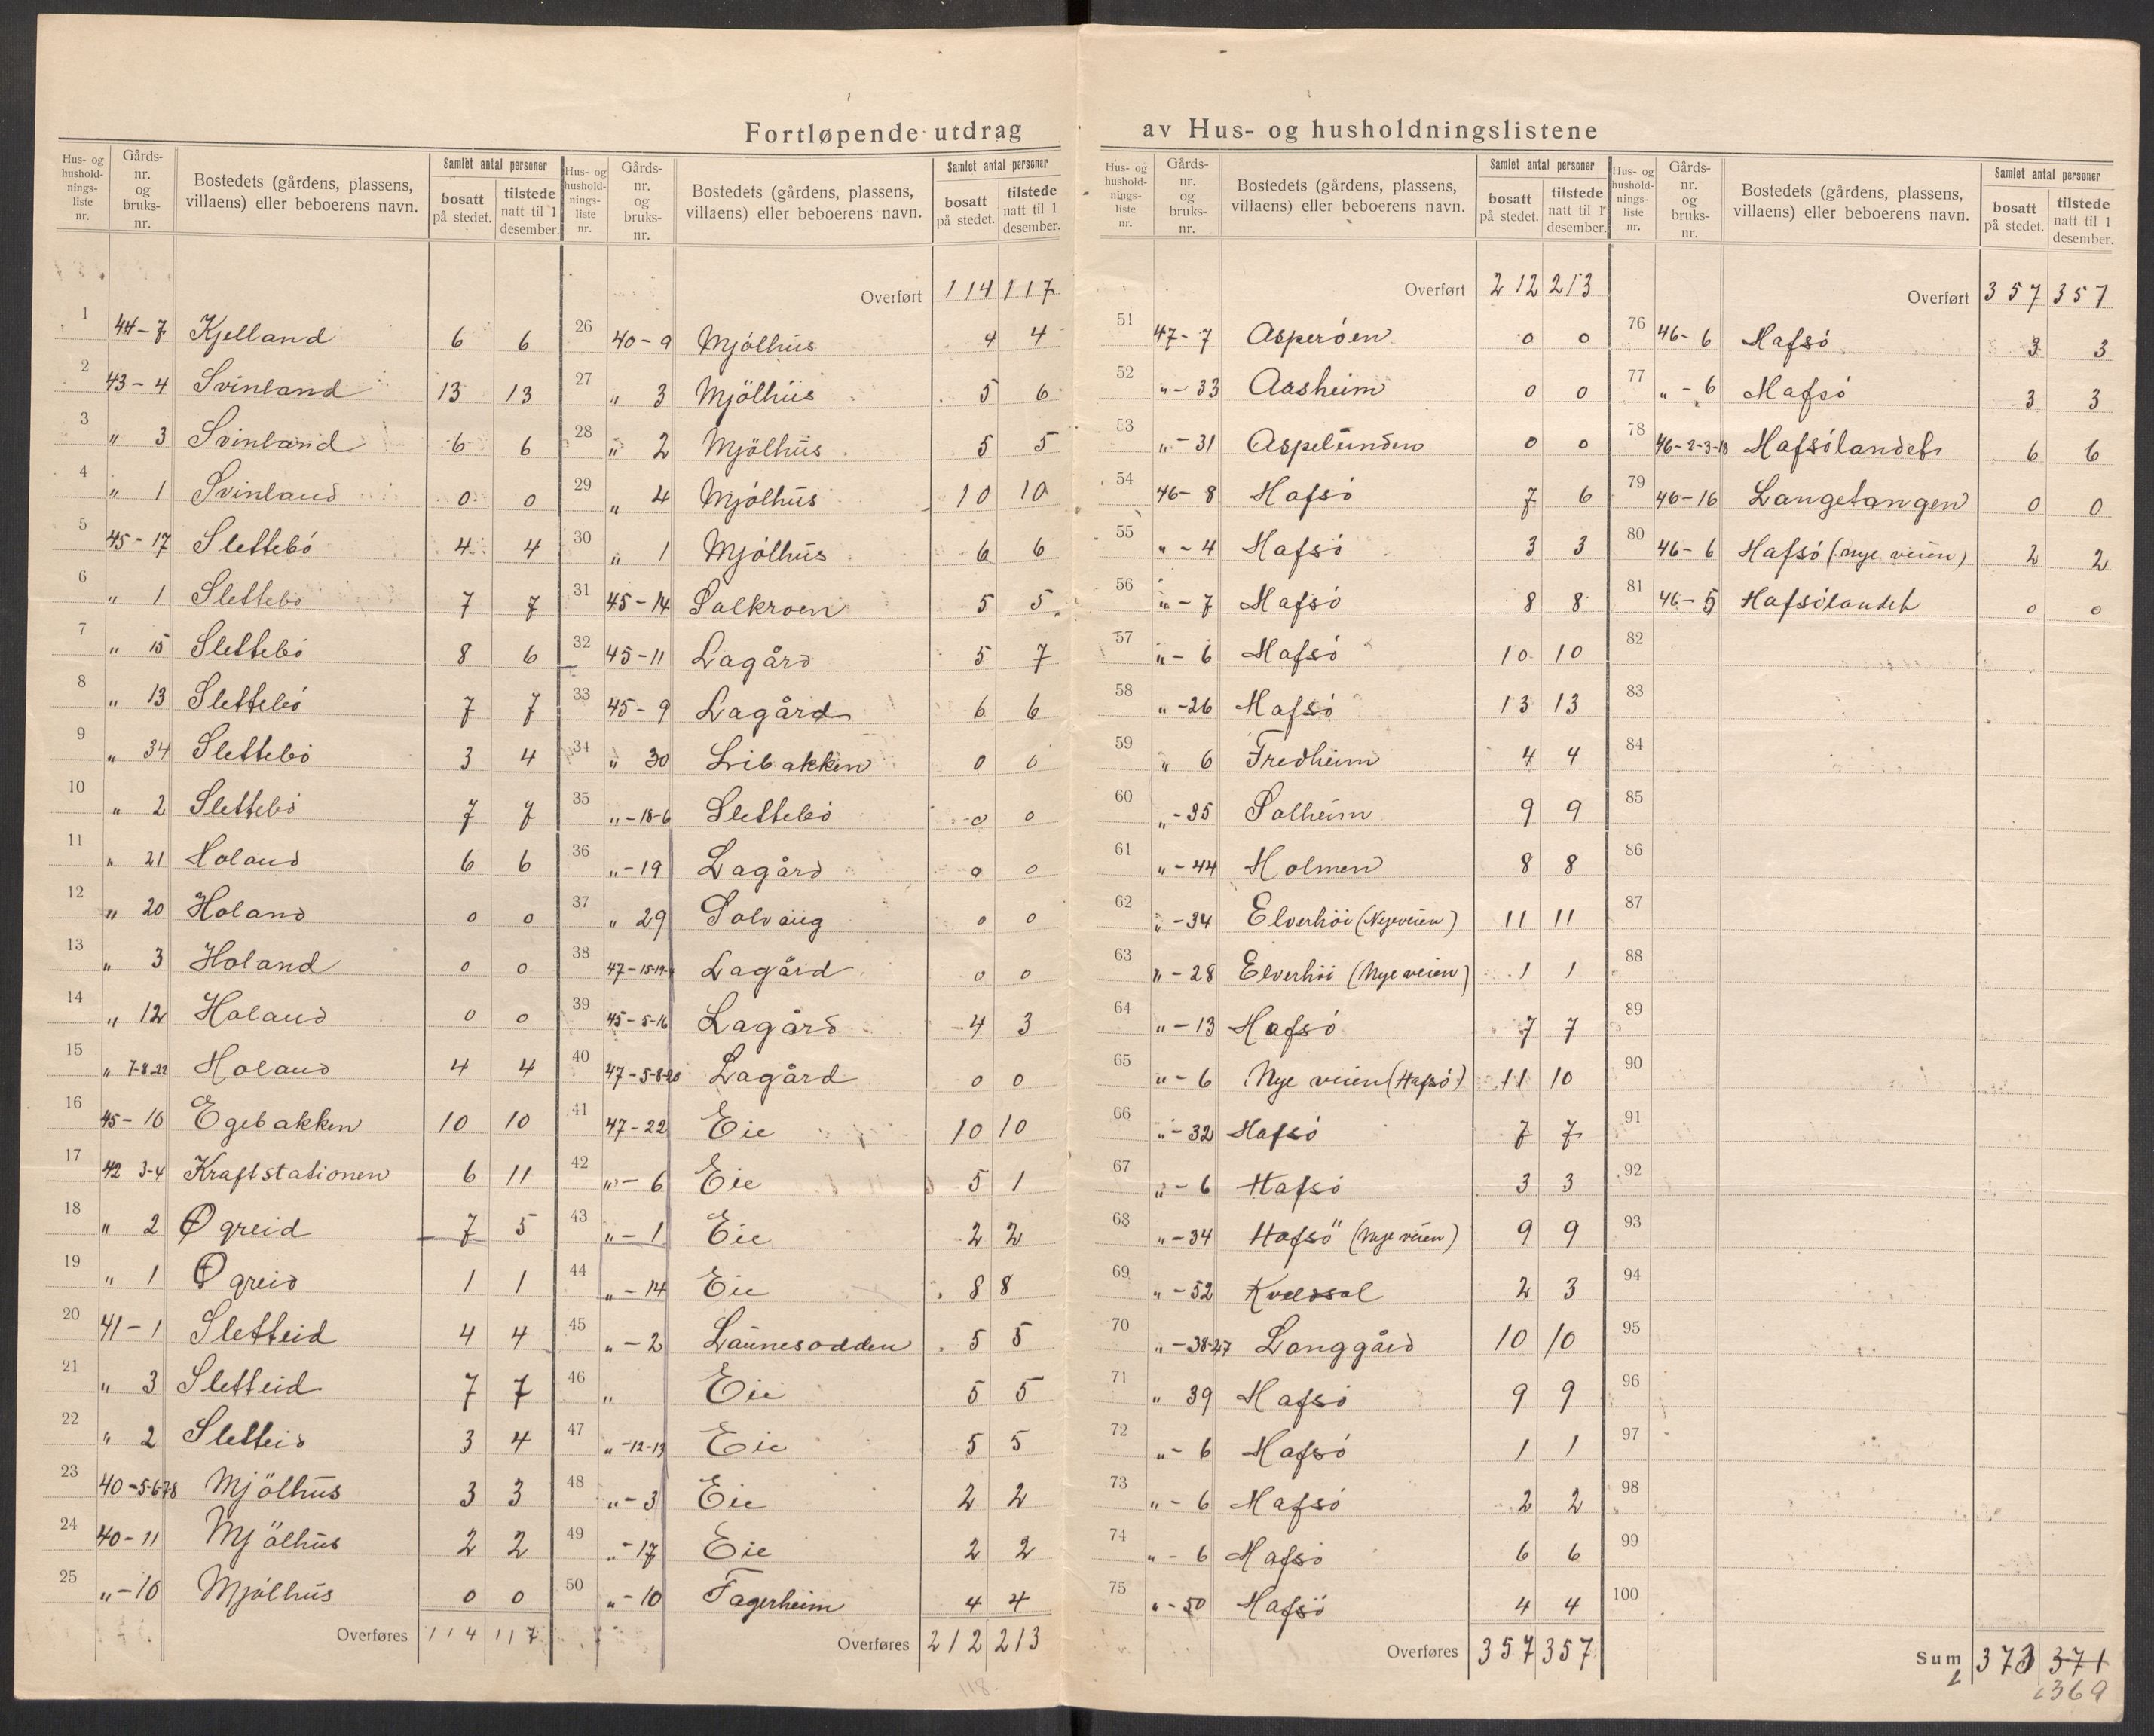 Fortløpende utdrag av Hus- og husholdningslistene
Hus- og husholdningsliste nr. | Gårds-nr. og bruks-nr. | Bostedets (gårdens, plassens, villaens) eller beboerens navn. | Samlet antal personer bosatt på stedet. | tilstede natt til 1 desember.
1 44-7 Kjelland 6 6
2 43-4 Svinland 13 13
3 " 3 Svinland 6 6
4 " 1 Svinland 0 0
5 45-17 Slettebó 4 4
6 " 1 Slettebó 7 7
7 " 15 Slettebó 8 6
8 " 13 Slettebó 7 7
9 " 34 Slettebó 3 4
10 " 2 Slettebó 7 7
11 " 21 Holand 6 6
12 " 20 Holand 0 0
13 " 3 Holand 0 0
14 " 12 Holand 0 0
15 " 7-8-22 Holand 4 4
16 45-16 Egebakken 10 10
17 42 3-4 Kraftstationen 6 11
18 " 2 Øgreid 7 5
19 " 1 Øgreid 1 1
20 41-1 Sletteid 4 4
21 " 3 Sletteid 7 7
22 " 2 Sletteid 3 4
23 40-5-6-7-8 Mjölhus 3 3
24 40-11 Mjölhus 2 2
25 "-10 Mjólhus 0 0
Overføres 114 117
Hus- og husholdningsliste nr. | Gårds-nr. og bruks-nr. | Bostedets (gårdens, plassens, villaens) eller beboerens navn. | Samlet antal personer bosatt på stedet. | tilstede natt til 1 desember.
Overført 114 117
26 40-9 Mjólhus 4 4
27 " 3 Mjölhus 5 6
28 " 2 Mjölhus 5 5
29 " 4 Mjólhus 10 10
30 " 1 Mjólhus 6 6
31 45-14 Solkroen 5 5
32 45-11 Lagård 5 7
33 45-9 Lagård 6 6
34 " 30 Libakken 0 0
35 "-18-6 Slettebó 0 0
36 "-19 Lagård 0 0
37 " 29 Solvang 0 0
38 Lagård 0 0
39 45-5-16 Lagård 4 3
40 Lagård 0 0
41 47-22 Eie 10 10
42 "-6 Eie 5 1
43 "-1 Eie 2 2
44 "-14 Eie 8 8
45 "-2 Launesodden 5 5
46 " Eie 5 5
47 "-12-13 Eie 5 5
48 "-3 Eie 2 2
49 "-17 Eie 2 2
50 "-10 Fagerheim 4 4
Overføres 212 213
118
Hus- og husholdningsliste nr. | Gårds-nr. og bruks-nr. | Bostedets (gårdens, plassens, villaens) eller beboerens navn. | Samlet antal personer bosatt på stedet. | tilstede natt til 1 desember.
Overført 212 213
51 47-7 Asperóen 0 0
52 "-33 Aasheim 0 0
53 "-31 Aspelunden 0 0
54 46-8 Hafsó 7 6
55 "-4 Hafsó 3 3
56 "-7 Hafsó 8 8
57 "-6 Hafsó 10 10
58 "-26 Hafsó 13 13
59 " 6 Fredheim 4 4
60 "-35 Solheim 9 9
61 "-44 Holmen 8 8
62 "-34 Elverhöi (Nyeveien) 11 11
63 "-28 Elverhöi (Nye veien) 1 1
64 "-13 Hafsó 7 7
65 "-6 Nye veien (Hafsó) 11 10
66 "-32 Hafsó 7 7
67 "-6 Hafsó 3 3
68 "-34 Hafsö (Nye veien) 9 9
69 "-52 Kveldsol 2 3
70 "-38-27 Langgård 10 10
71 " 39 Hafsó 9 9
72 "-6 Hafsó 1 1
73 "-6 Hafsó 2 2
74 "-6 Hafsó 6 6
75 "-50 Hafsö 4 4
Overføres 357 357
Hus- og husholdningsliste nr. | Gårds-nr. og bruks-nr. | Bostedets (gårdens, plassens, villaens) eller beboerens navn. | Samlet antal personer bosatt på stedet. | tilstede natt til 1 desember.
Overført 357 357
76 46-6 Hafsó 3 3
77 "-6 Hafsó 3 3
78 46-2-3-18 Hafsólandet 6 6
79 46-16 Langetangen 0 0
80 46-6 Hafsó (nye veien) 2 2
81 46-5 Hafsólandet 0 0
82
83
84
85
86
87
88
89
90
91
92
93
94
95
96
97
98
99
100
Sum 371
369